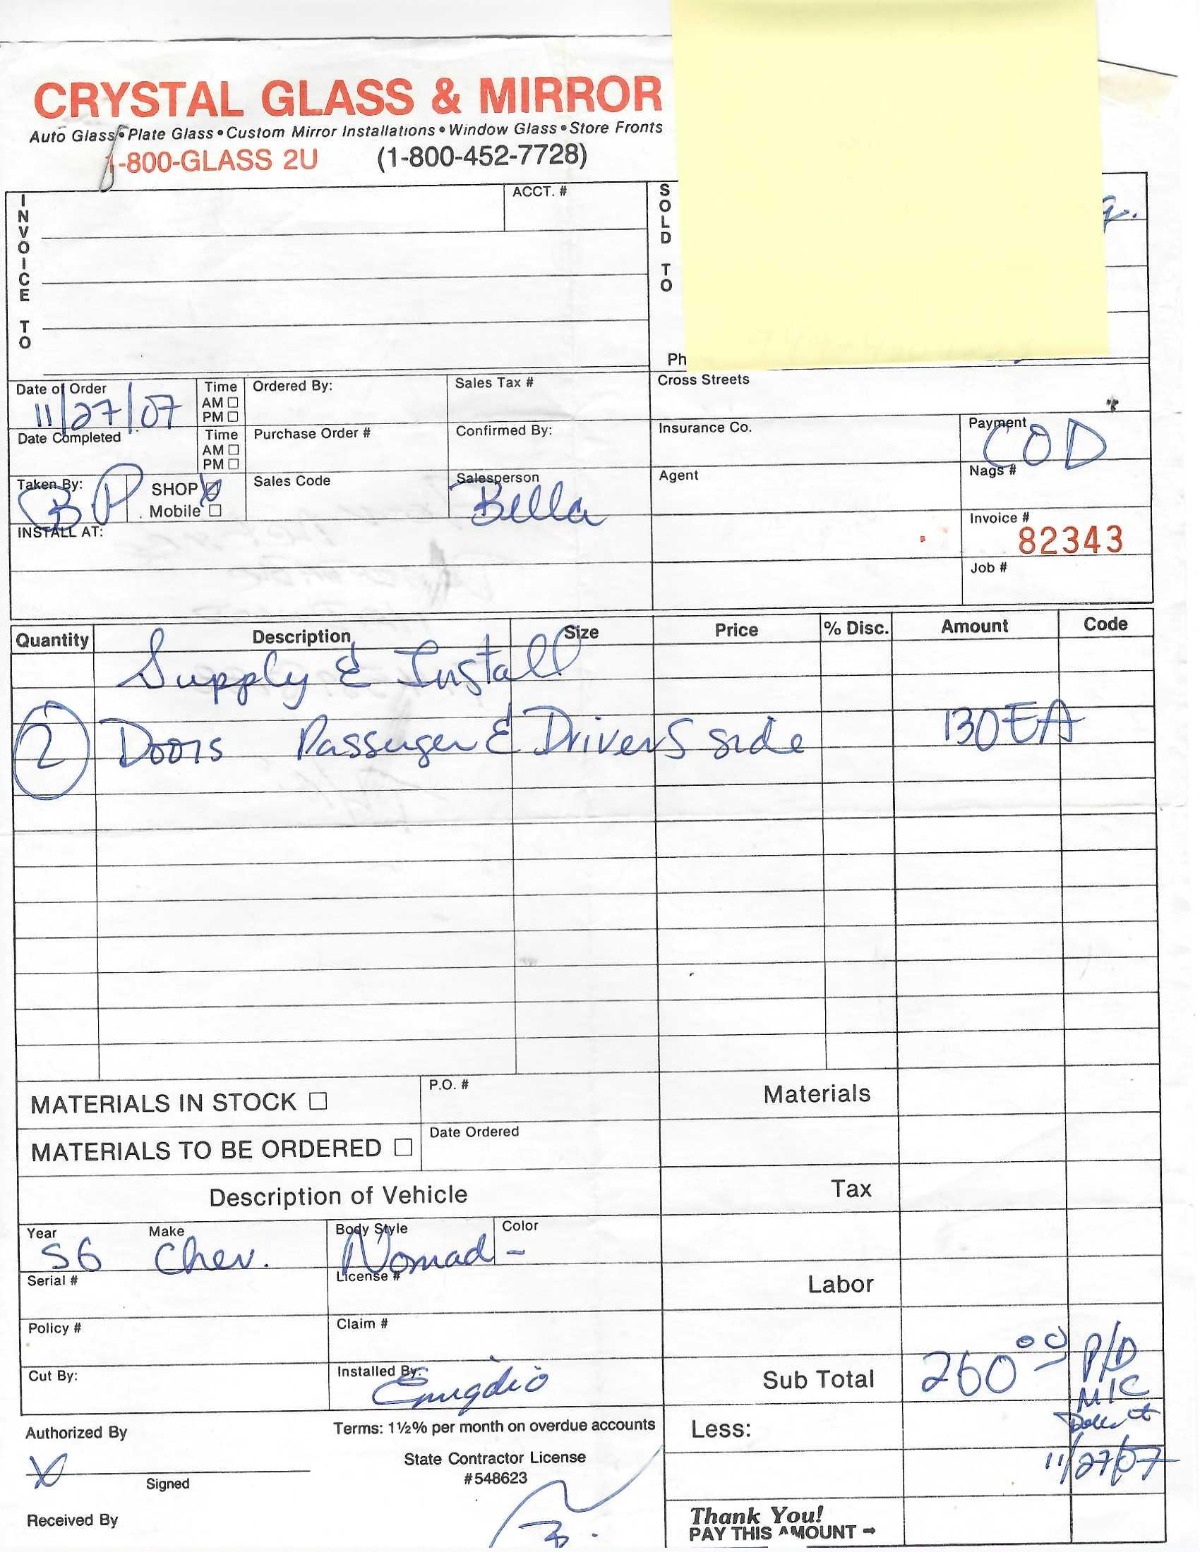 CRYSTAL GLASS & MIRROR
Auto Glass • Plate Glass • Custom Mirror Installations • Window Glass • Store Fronts
1-800-GLASS 2U (1-800-452-7728)
INVOICE TO
ACCT. #
SOLD TO
Ph
Date of Order 11/27/07
Time AM ☐ PM ☐
Ordered By:
Sales Tax #
Cross Streets
Date Completed
Time AM ☐ PM ☐
Purchase Order #
Confirmed By:
Insurance Co.
Payment COD
Taken By: BP
SHOP ☑
Mobile ☐
Sales Code
Salesperson Bella
Agent
Nags #
INSTALL AT:
Invoice # 82343
Job #
Quantity Description Size Price % Disc. Amount Code
Supply & Install
2 Doors Passenger & Drivers side 130 EA
MATERIALS IN STOCK ☐
P.O. #
Materials
MATERIALS TO BE ORDERED ☐
Date Ordered
Description of Vehicle
Tax
Year 56 Make Chev. Body Style Nomad Color -
Serial #
License #
Labor
Policy #
Claim #
Cut By:
Installed By: Emigdio
Sub Total 260.00 P/D
M/C
11/27/07
Authorized By
Terms: 1½% per month on overdue accounts
Less:
X
Signed
State Contractor License
#548623
Received By
Thank You!
PAY THIS AMOUNT